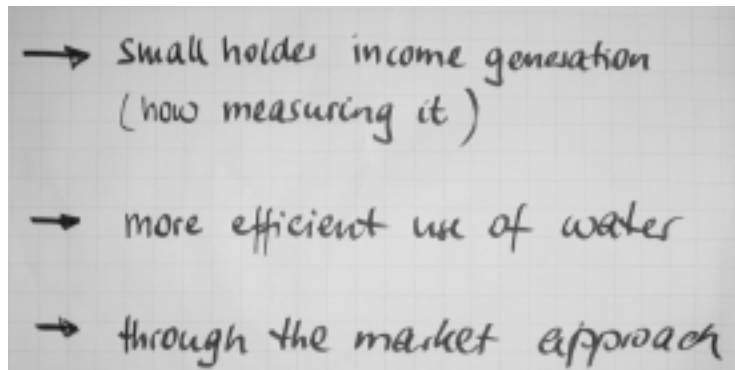 → small holder income generation
(how measuring it)
→ more efficient use of water
→ through the market approach